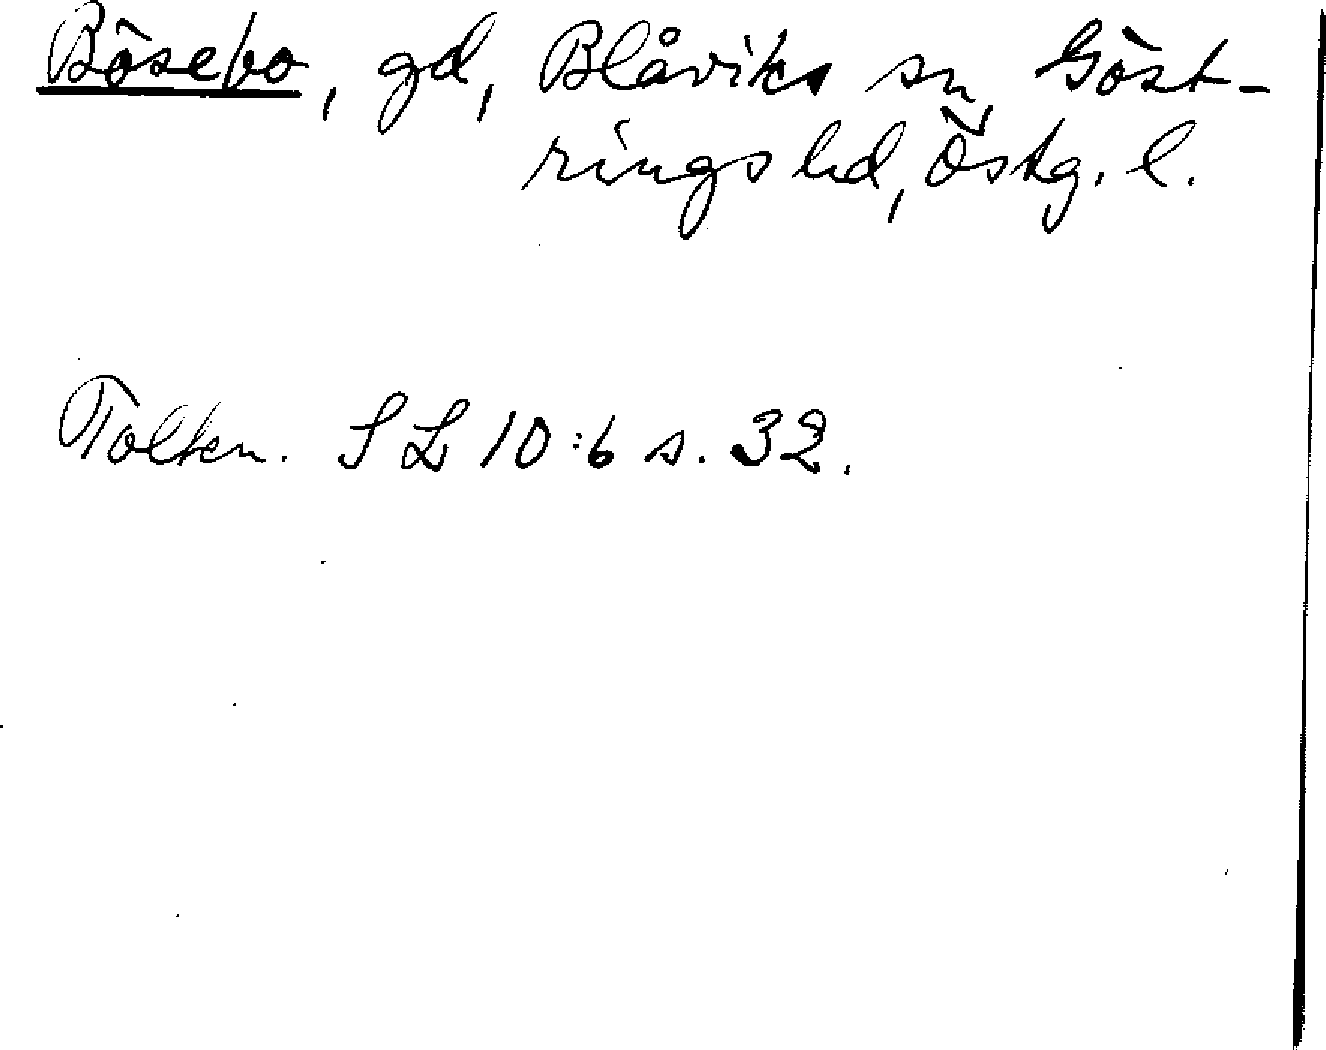 Bösebo, gd, Blåviks sn, Göst-
rings hd, Östg. l.
Tolkn. SL 10:6 s. 32.